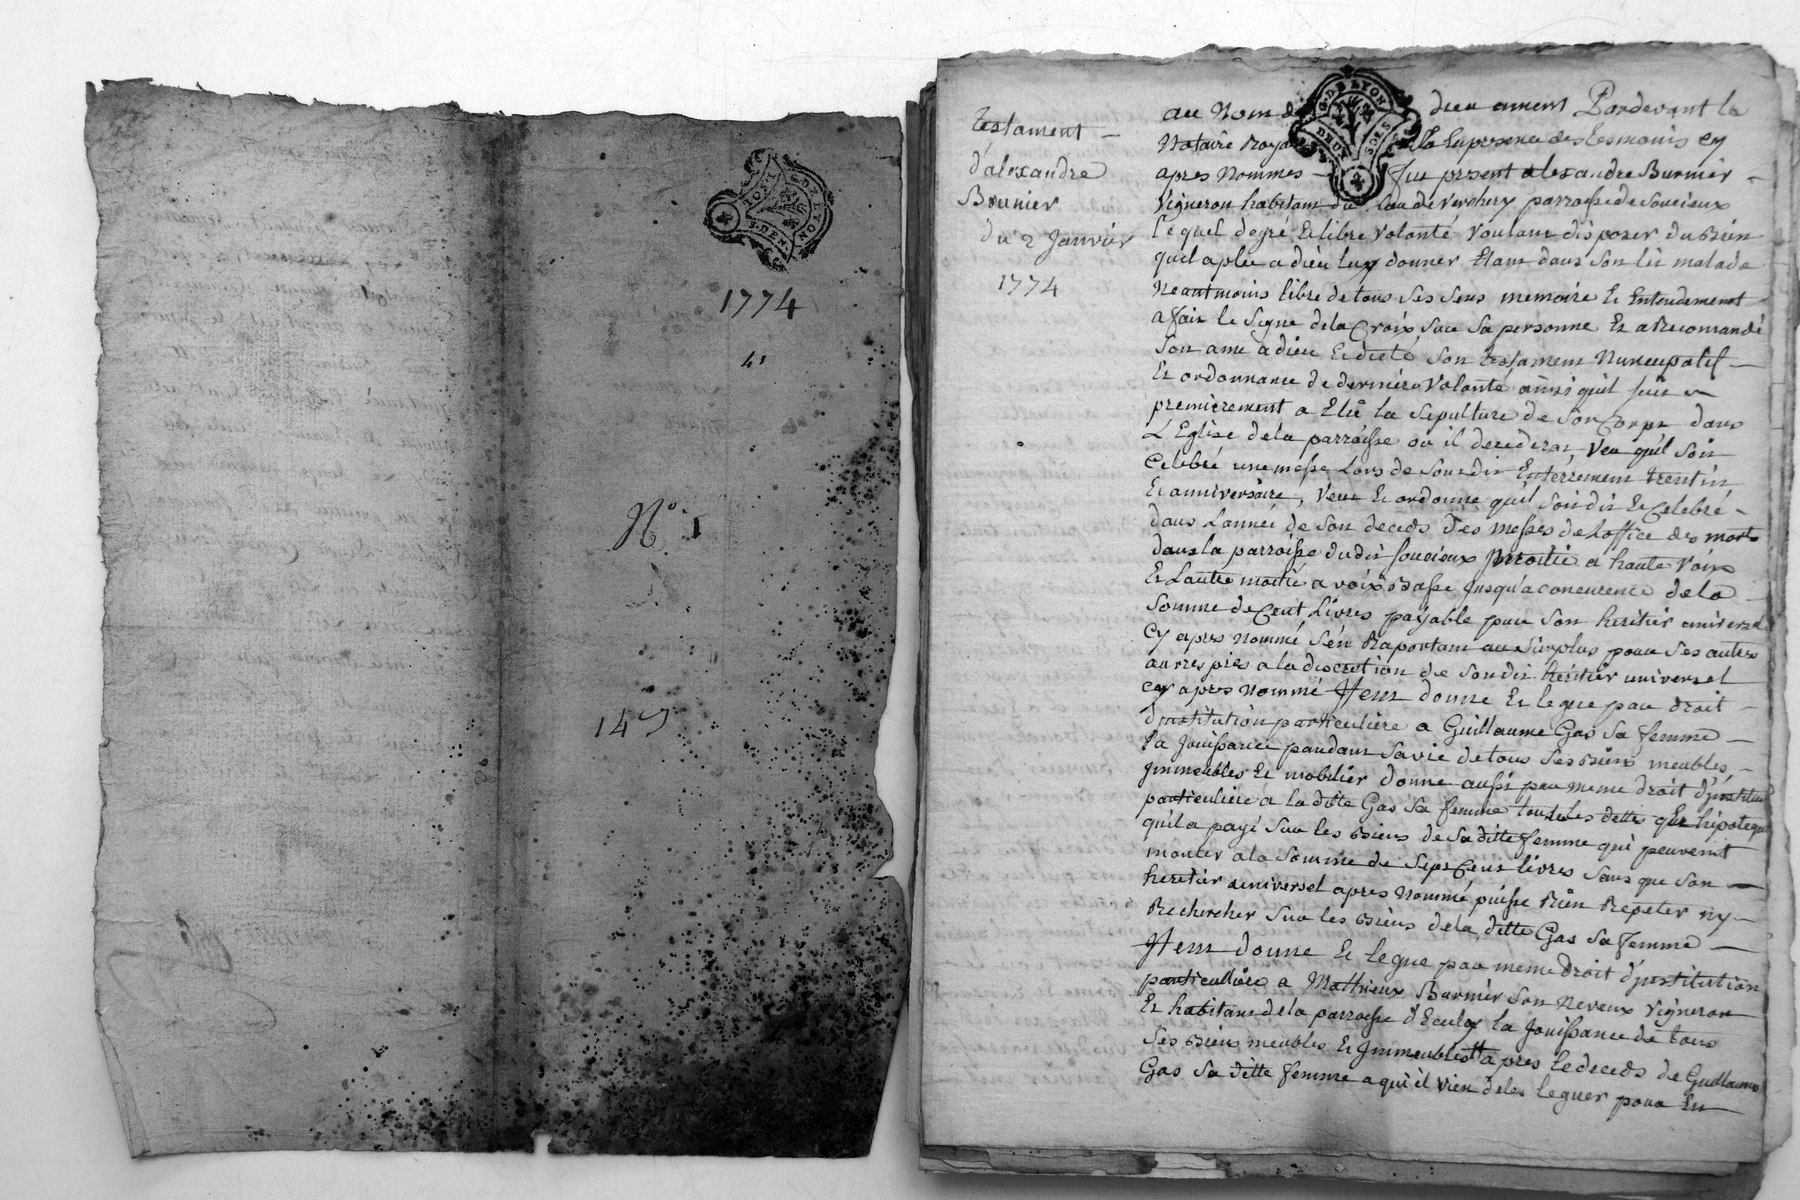 1774
4
N.° 1
149
Testament
d'alexandre
Brunier
du 2 Janvier
1774
G. DE LYON
DEUX SOLS
au Nom de dieu amens Pardevant le
Notaire Royal En presence des tesmoins cy
apres Nommes fut present alexandre Burnier
Vigneron habitant du lieu de Verchery parroisse de Soucieux
lequel de gré Et libre Volonté Voulant disposer du Bien
quil a pleu a dieu luy donner Etant dans Son lit malade
Neautmoins libre de tous Ses Sens memoire Et Entendement
a fait le Signe de la Croix Sur Sa personne Et a Recomandé
Son ame a dieu Et dicté Son testament Nuncupatif
Et ordonnance de derniere Volonté ainsi quil suit
premierement a Elû la Sepulture de Son Corps dans
L'Eglise de la parroisse ou il decedera, Veu quil Soit
Celebré une messe Lors de Sondit Enterrement trentin
Et anniversaire, Veut Et ordonne quil Soit dit Et Celebré
dans Lannée de Son deceds des messes de Loffice des morts
dans la parroisse dudit Soucieux Moitié a haute Voix
Et Lautre moitié a voix Basse Jusqu'a concurence de la
Somme de Cent Livres payable par Son heritier universel
Cy apres Nommé S'en Raportant au Surplus pour Ses autres
œuvres pies a la discretion de Sondit heritier universel
cy apres Nommé Item donne Et legue par droit
d'institution particuliere a Guillaume Gas Sa femme
la Jouissance pandant Sa vie de tous Ses Biens meubles
Immeubles Et mobilier donne aussi par meme droit d'institution
particuliere a la ditte Gas Sa femme toutes les dettes que hipoteque
quil a payé Sur les Biens de Sa ditte femme qui peuvent
monter a la Somme de Sept Cent livres Sans que Son
heritier universel apres Nommé puisse Rien Repeter ny
Rechercher Sur les Biens de la ditte Gas Sa femme
Item donne Et legue par meme Droit d'institution
particulliere a Matthieux Burnier Son Neveux Vigneron
Et habitant de la parroisse d'Eculy la Jouissance de tous
Ses Biens meubles Et Immeubles apres le deceds de Guillaume
Gas Sa ditte femme a qui il vien de les leguer pour En